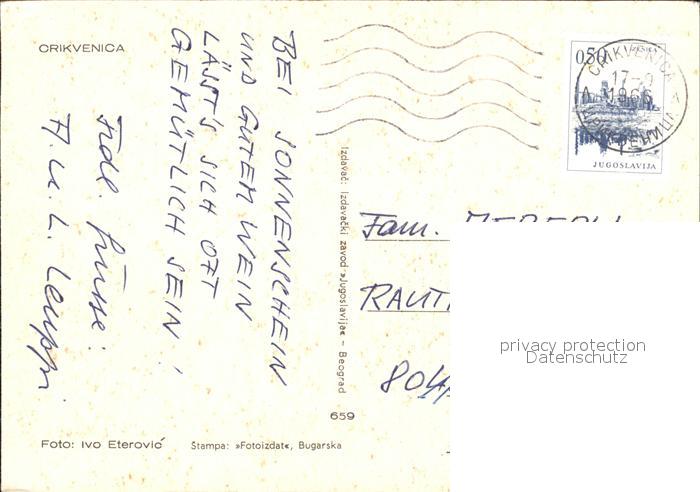 CRIKVENICA
BEI SONNENSCHEIN
UND GUTEM WEIN
LÄSST'S SICH OFT
GEMÜTLICH SEIN!
Frdl. Grüsse:
Foto: Ivo Eterović
Štampa: »Fotoizdat«, Bugarska
Izdavač: Izdavački zavod »Jugoslavija« – Beograd
659
0,50
JUGOSLAVIJA
CRIKVENICA
17-9
1966
Fam.
privacy protection
Datenschutz